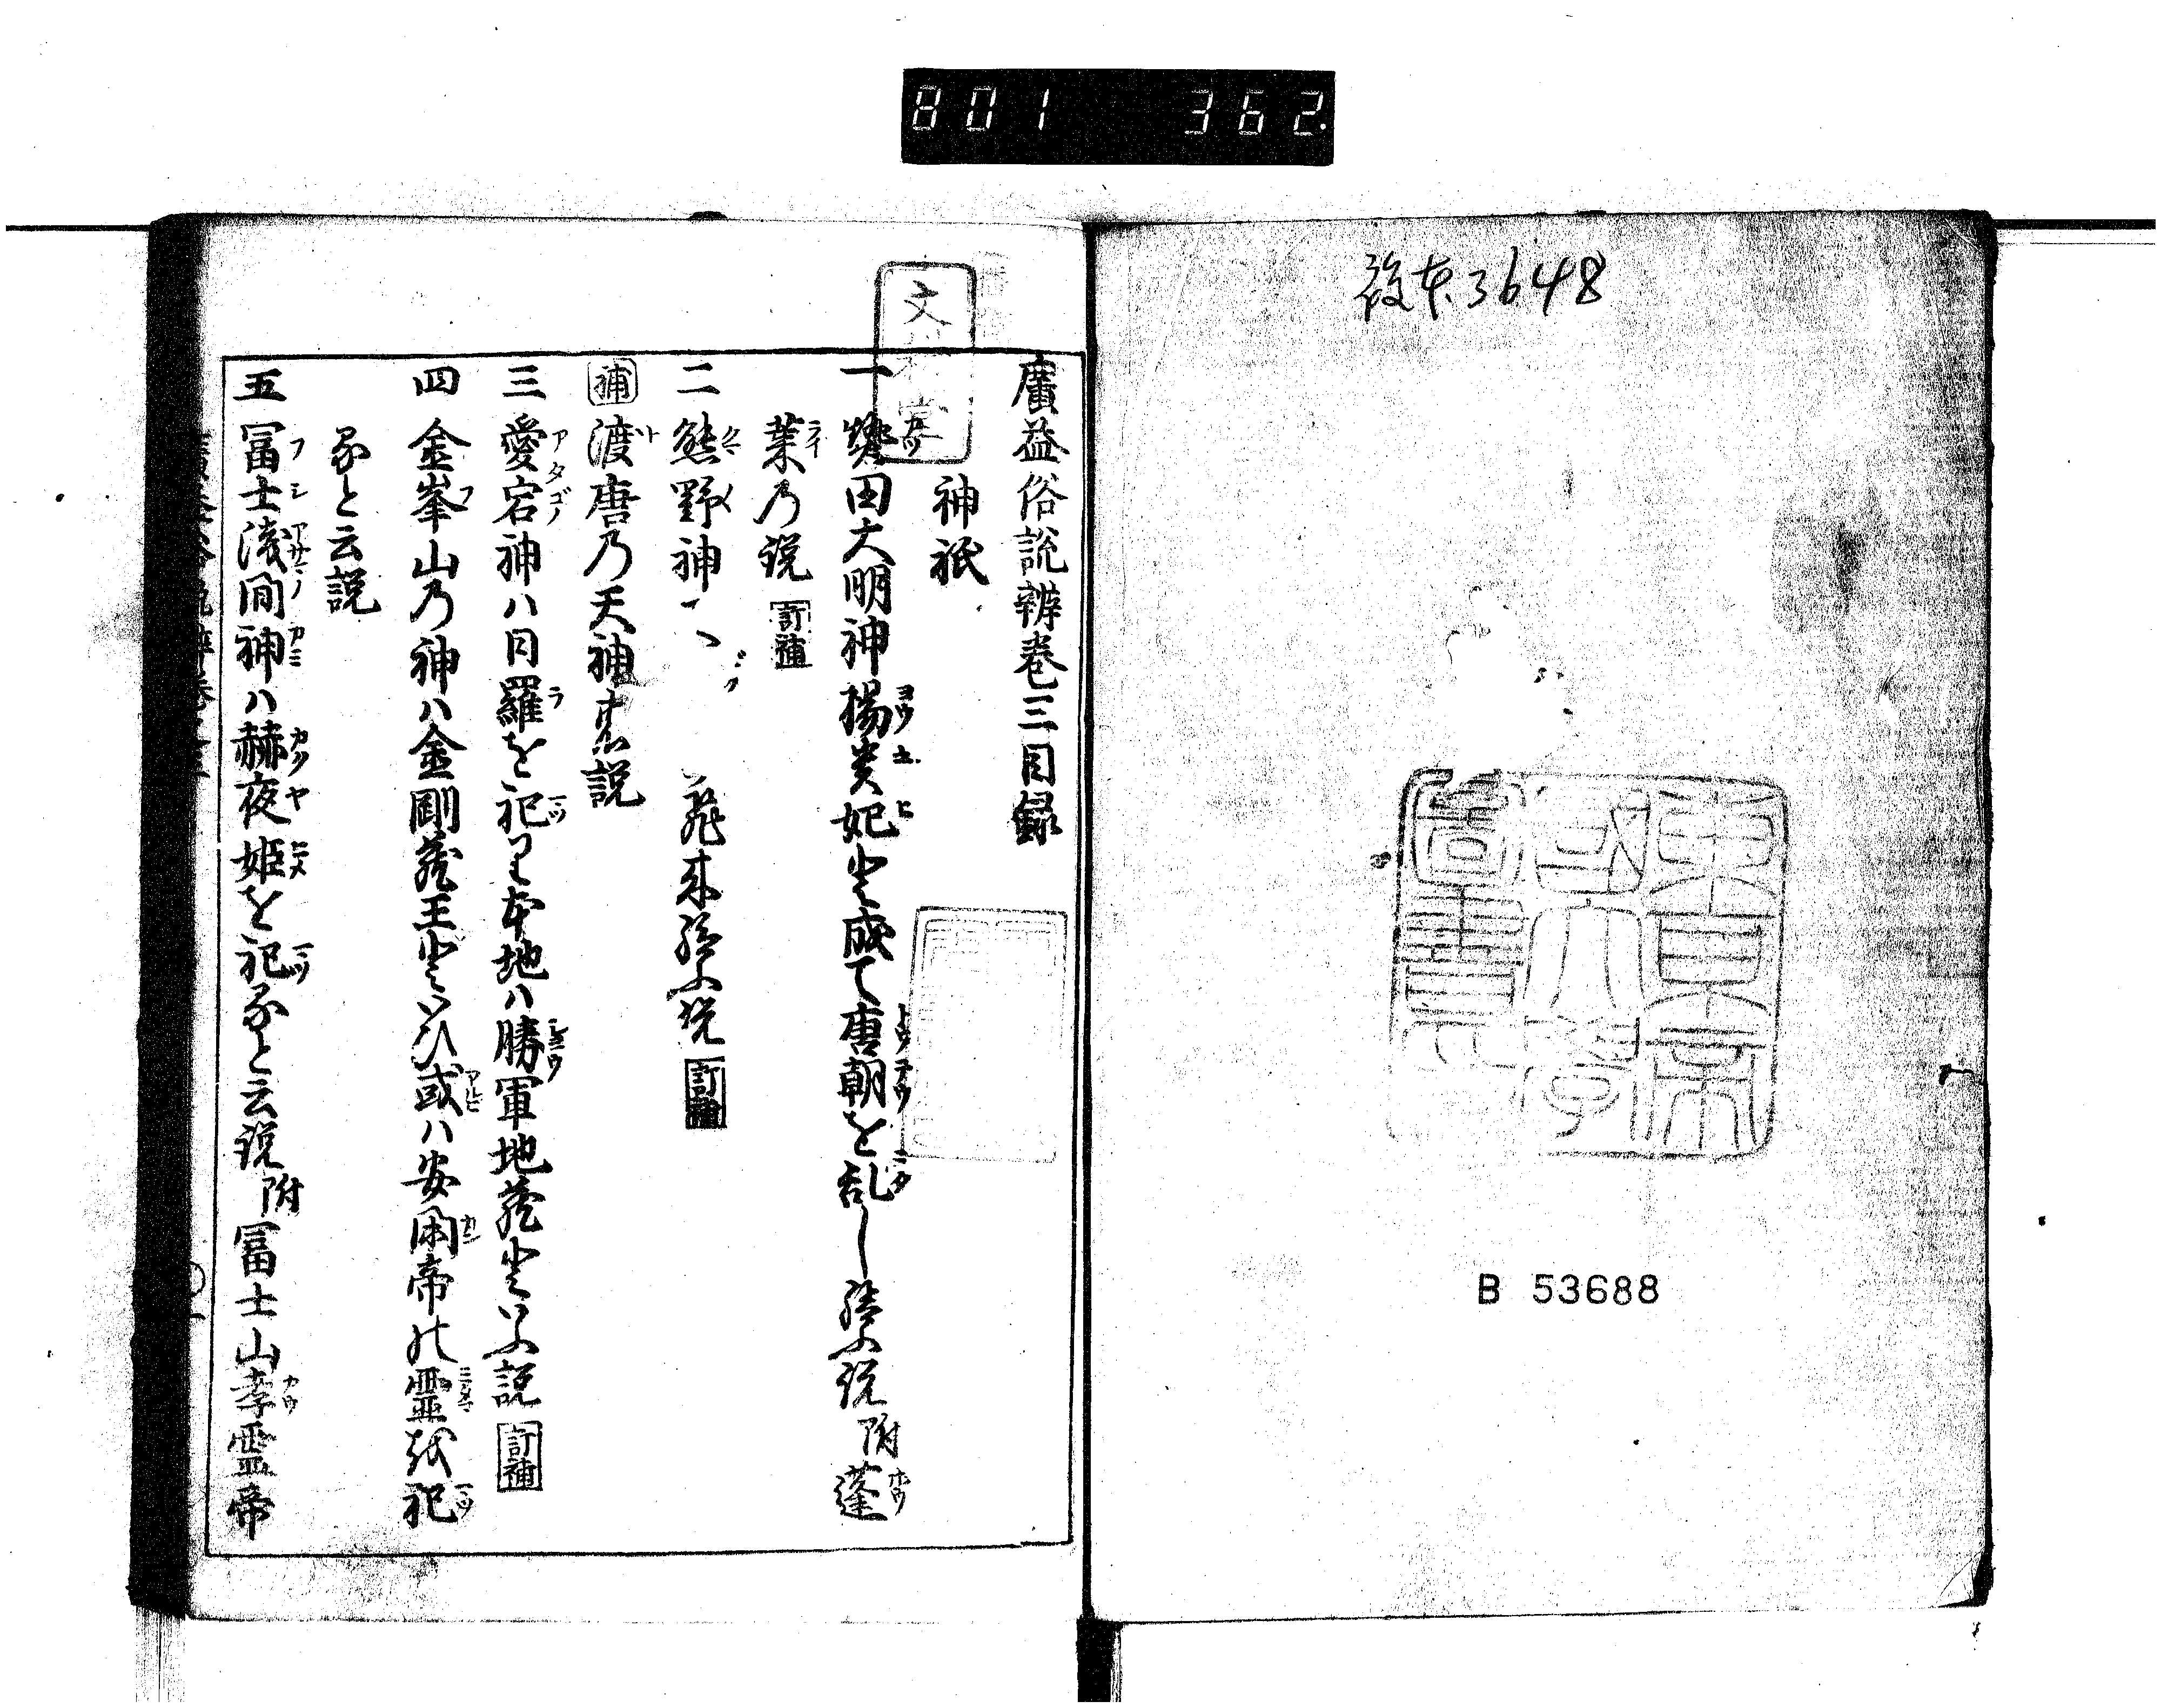 801 362.
後本3648
東京帝国大学図書印
B 53688
廣益俗説辨巻三目録
神祇
一 𤍠田大明神楊貴妃と成て唐朝を乱し給ふ説 附 蓬
莱乃説 訂補
二 熊野神 飛来給ふ説 訂補
補 渡唐乃天神の説
三 愛宕神ハ日羅を祀り本地ハ勝軍地蔵といふ説 訂補
四 金峯山乃神ハ金剛蔵王といひ或ハ安閑帝の霊を祀
ると云説
五 冨士浅間神ハ赫夜姫を祀ると云説 附 冨士山孝霊帝